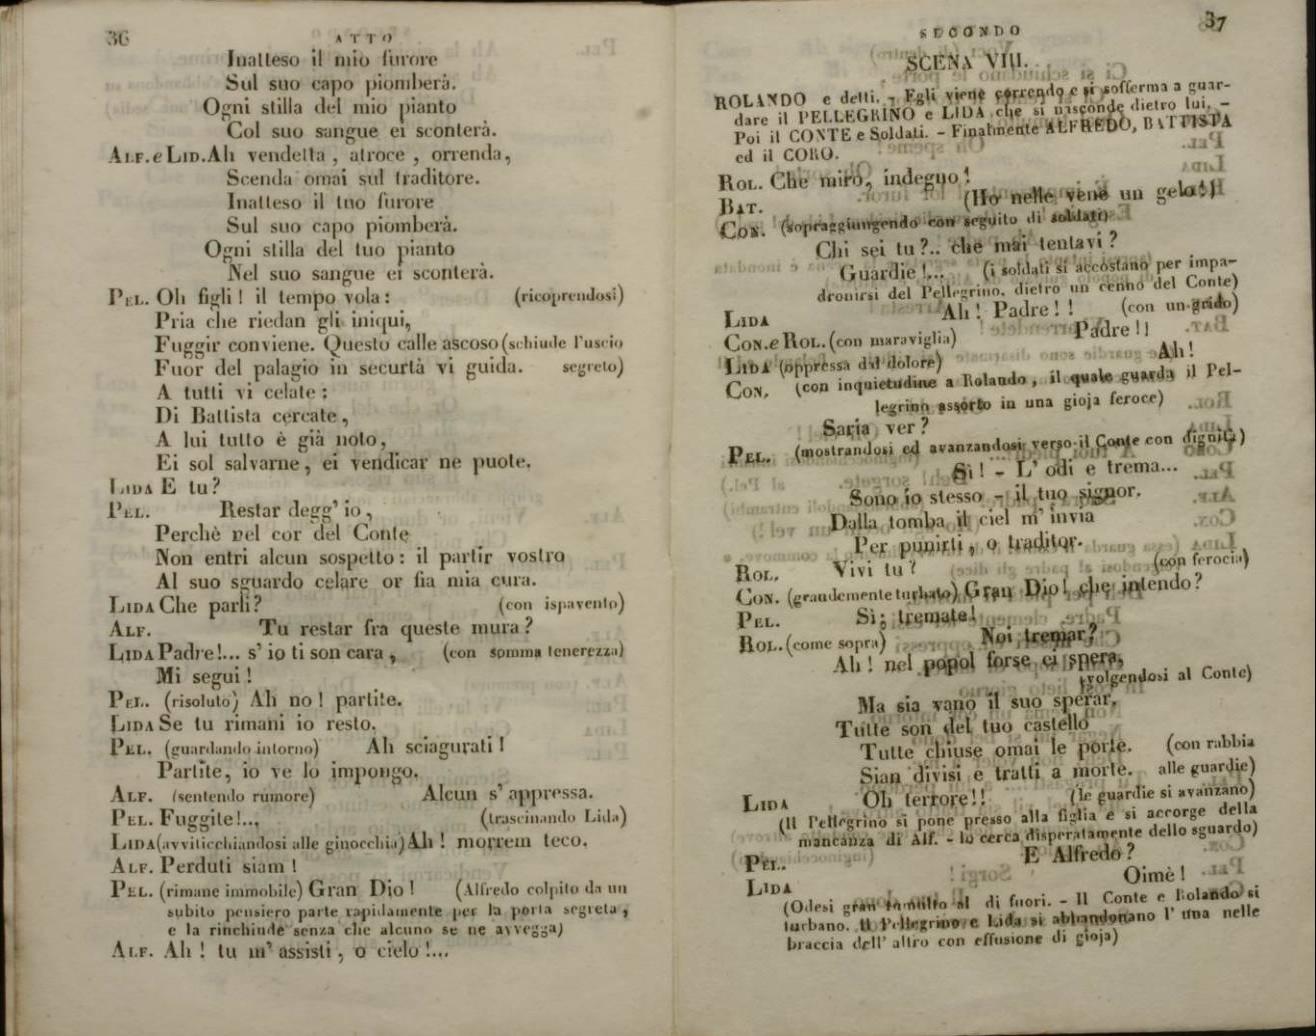 36
ATTO
Inatteso il mio furore
Sul suo capo piomberà.
Ogni stilla del mio pianto
Col suo sangue ei sconterà.
ALF. e LID. Ah vendetta, atroce, orrenda,
Scenda omai sul traditore.
Inatteso il tuo furore
Sul suo capo piomberà.
Ogni stilla del tuo pianto
Nel suo sangue ei sconterà.
PEL. Oh figli! il tempo vola: (ricoprendosi)
Pria che riedan gli iniqui,
Fuggir conviene. Questo calle ascoso (schiude l'uscio
Fuor del palagio in securtà vi guida. segreto)
A tutti vi celate;
Di Battista cercate,
A lui tutto è già noto,
Ei sol salvarne, ei vendicar ne puote.
LIDA E tu?
PEL. Restar degg' io,
Perchè nel cor del Conte
Non entri alcun sospetto: il partir vostro
Al suo sguardo celare or fia mia cura.
LIDA Che parli? (con ispavento)
ALF. Tu restar fra queste mura?
LIDA Padre!... s' io ti son cara, (con somma tenerezza)
Mi segui!
PEL. (risoluto) Ah no! partite.
LIDA Se tu rimani io resto.
PEL. (guardando intorno) Ah sciagurati!
Partite, io ve lo impongo.
ALF. (sentendo rumore) Alcun s' appressa.
PEL. Fuggite!... (trascinando Lida)
LIDA (avviticchiandosi alle ginocchia) Ah! morrem teco.
ALF. Perduti siam!
PEL. (rimane immobile) Gran Dio! (Alfredo colpito da un
subito pensiero parte rapidamente per la porta segreta,
e la rinchiude senza che alcuno se ne avvegga)
ALF. Ah! tu m' assisti, o cielo!...
SECONDO
37
SCENA VIII.
ROLANDO e detti. - Egli viene correndo e si sofferma a guar-
dare il PELLEGRINO e LIDA che si nasconde dietro lui. -
Poi il CONTE e Soldati. - Finalmente ALFREDO, BATTISTA
ed il CORO.
ROL. Che miro, indegno!
BAT. (Ho nelle vene un gelo!)
CON. (sopraggiungendo con seguito di soldati)
Chi sei tu?.. che mai tentavi?
Guardie!... (i soldati si accostano per impa-
dronirsi del Pellegrino, dietro un cenno del Conte)
LIDA Ah! Padre!! (con un grido)
CON. e ROL. (con maraviglia) Padre!!
LIDA (oppressa dal dolore) Ah!
CON. (con inquietudine a Rolando, il quale guarda il Pel-
legrino assorto in una gioja feroce)
Saria ver?
PEL. (mostrandosi ed avanzandosi verso il Conte con dignità)
Sì! - L' odi e trema...
Sono io stesso - il tuo signor.
Dalla tomba il ciel m' invia
Per punirti, o traditor.
ROL. Vivi tu? (con ferocia)
CON. (grandemente turbato) Gran Dio! che intendo?
PEL. Sì; tremate!
ROL. (come sopra) Noi tremar?
Ah! nel popol forse ei spera,
(volgendosi al Conte)
Ma sia vano il suo sperar,
Tutte son del tuo castello
Tutte chiuse omai le porte. (con rabbia
Sian divisi e tratti a morte. alle guardie)
LIDA Oh terrore!! (le guardie si avanzano)
(Il Pellegrino si pone presso alla figlia e si accorge della
mancanza di Alf. - lo cerca disperatamente dello sguardo)
PEL. E Alfredo?
LIDA Oimè!
(Odesi gran tumulto al di fuori. - Il Conte e Rolando si
turbano. Il Pellegrino e Lida si abbandonano l' una nelle
braccia dell' altro con effusione di gioja)